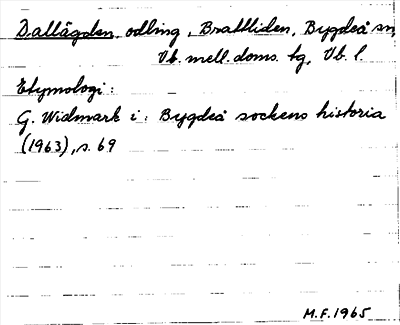 Dallågden, odling, Brattliden, Bygdeå sn,
Vb. mell. doms. tg, Vb. l.
Etymologi:
G. Widmark i: Bygdeå sockens historia
(1963), s. 69
M.F. 1965